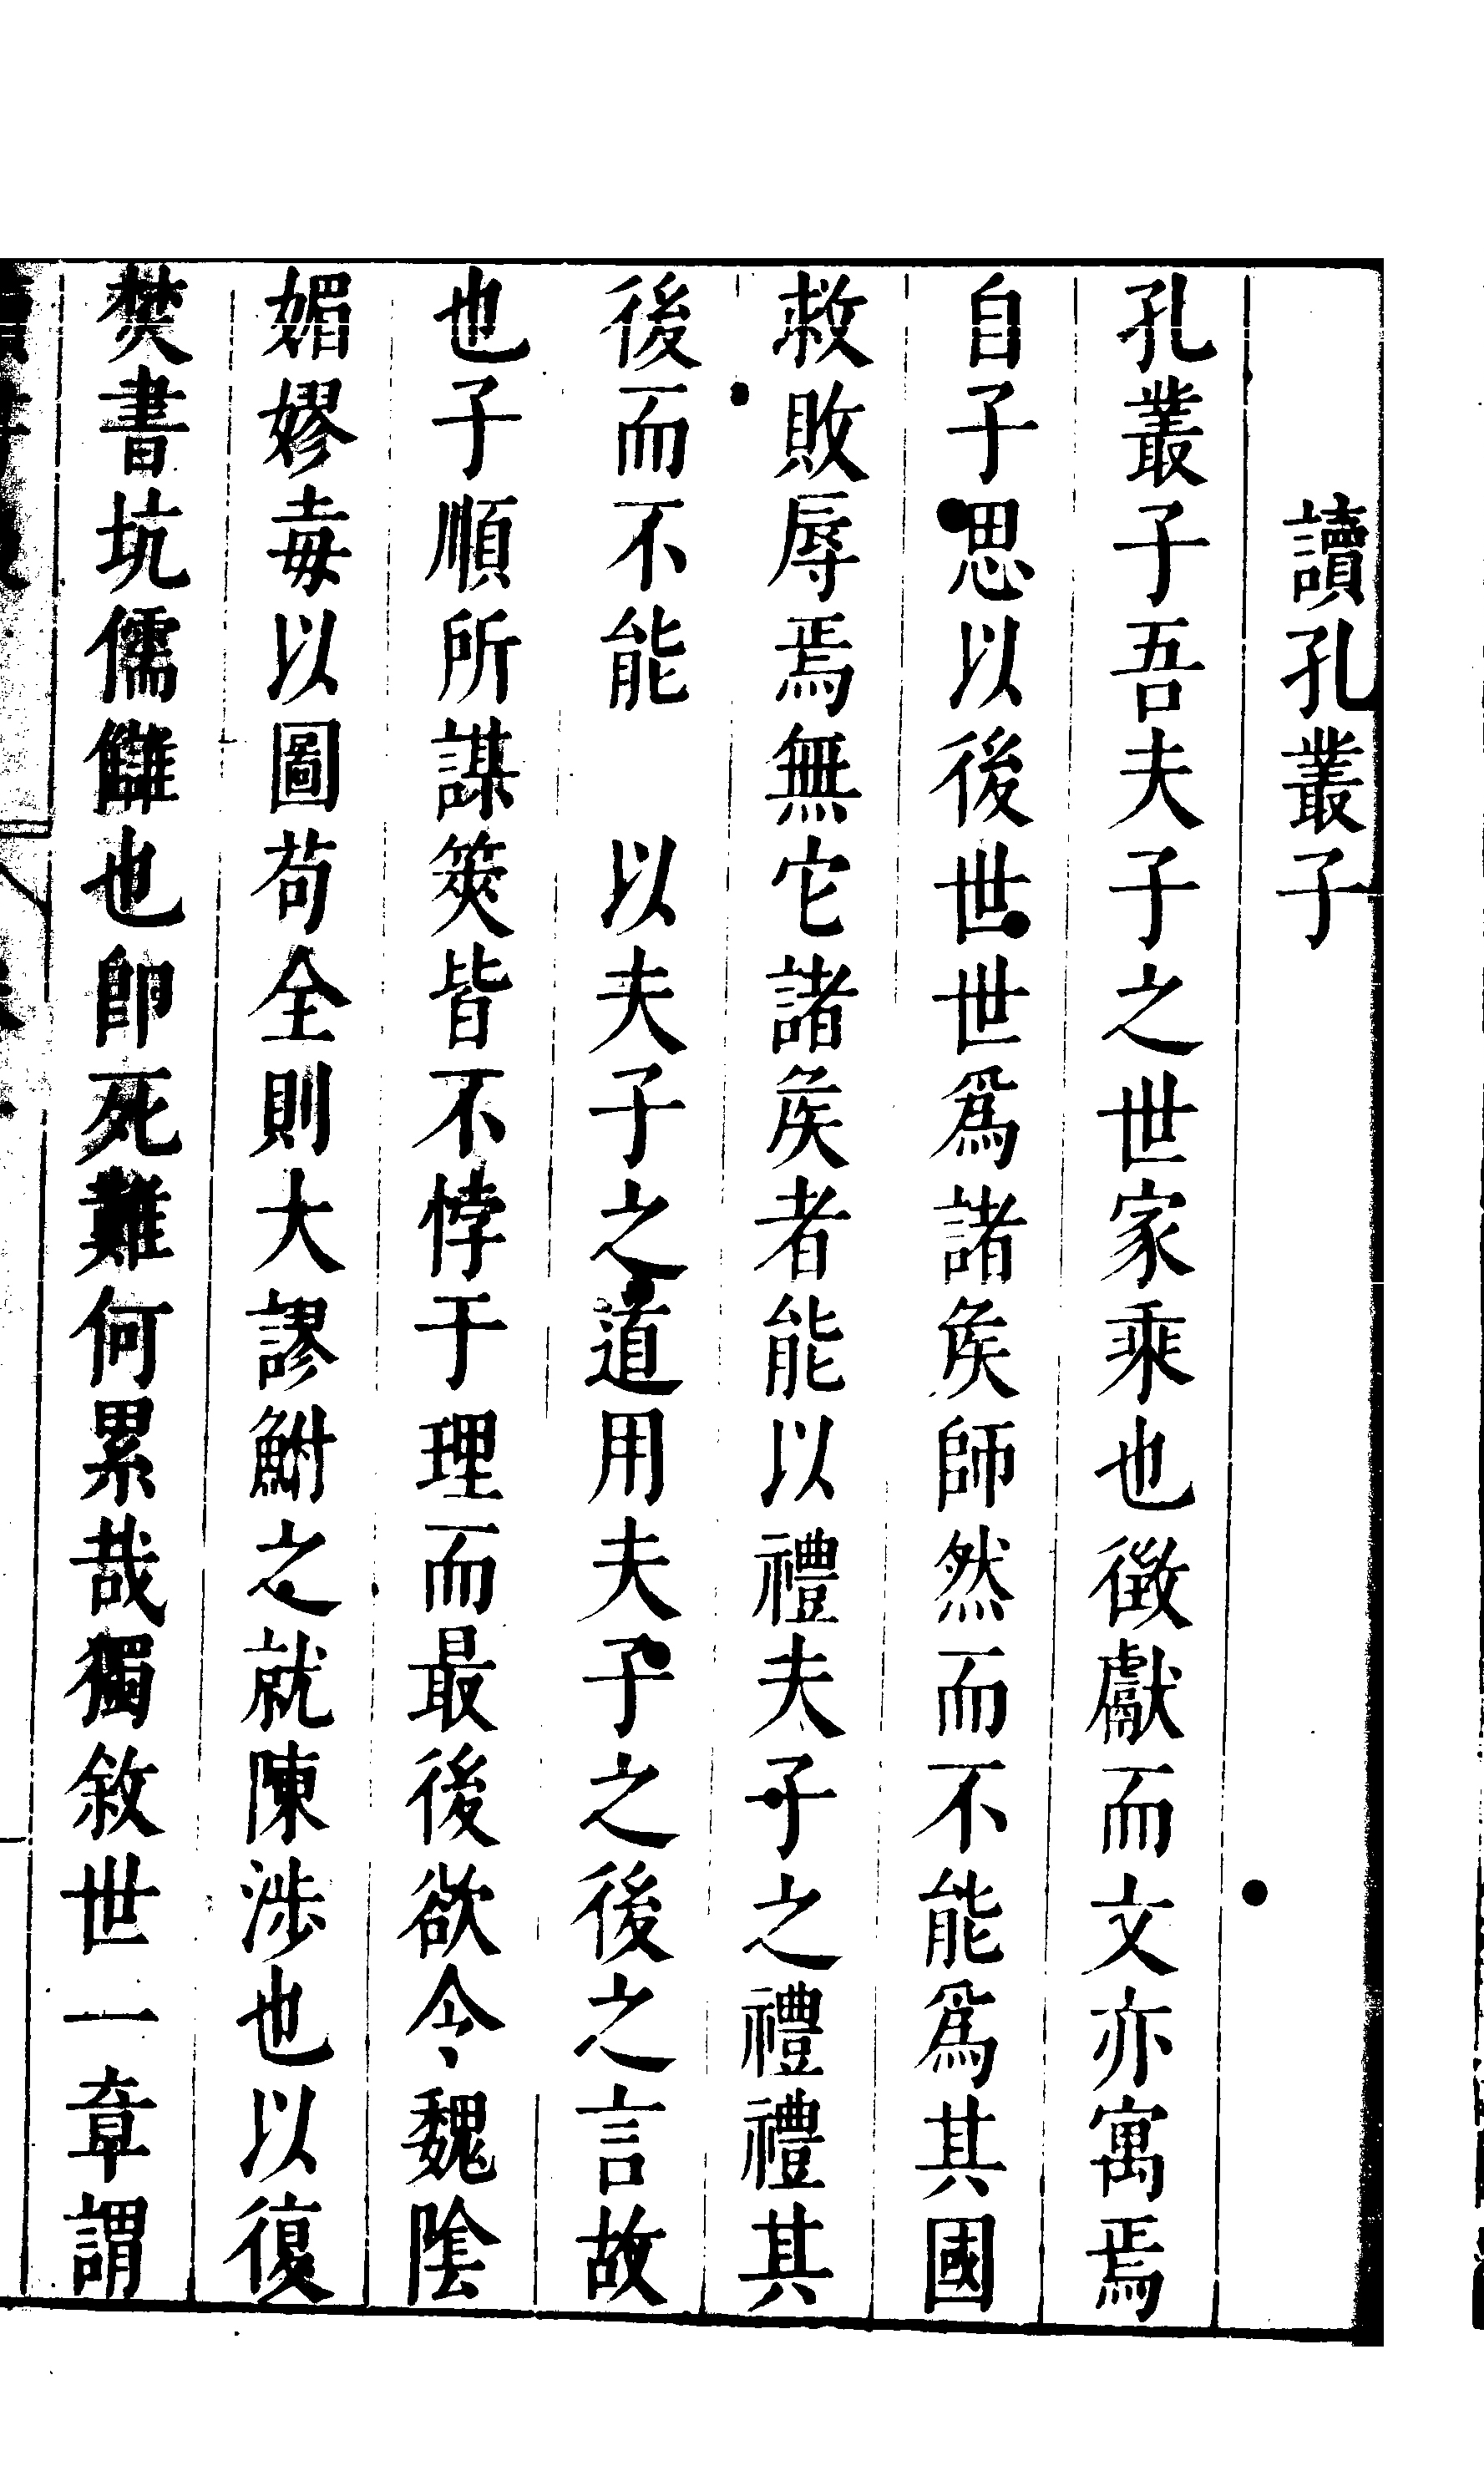 讀孔叢子
孔叢子吾夫子之世家乘也徵獻而文亦寓焉
自子思以後世世爲諸矦師然而不能爲其國
救敗辱焉無它諸矦者能以禮夫子之禮禮其
後而不能　以夫子之道用夫子之後之言故
也子順所謀筴皆不悖于理而最後欲令魏陰
媚嫪毐以圖苟全則大謬鮒之就陳涉也以復
焚書坑儒讎也卽死難何累哉獨敘世一章謂